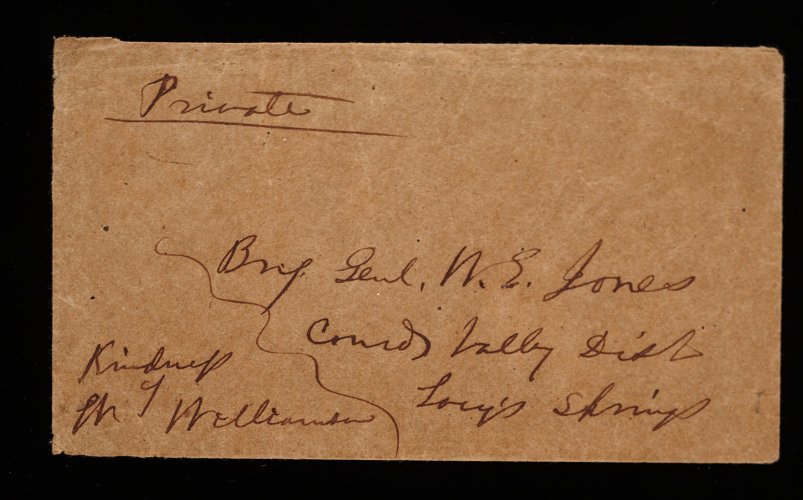 Private
Brig. Genl. W. E. Jones
Comdg Valley Dist
Lacy's Springs
Kindness
of
Mr Williamson